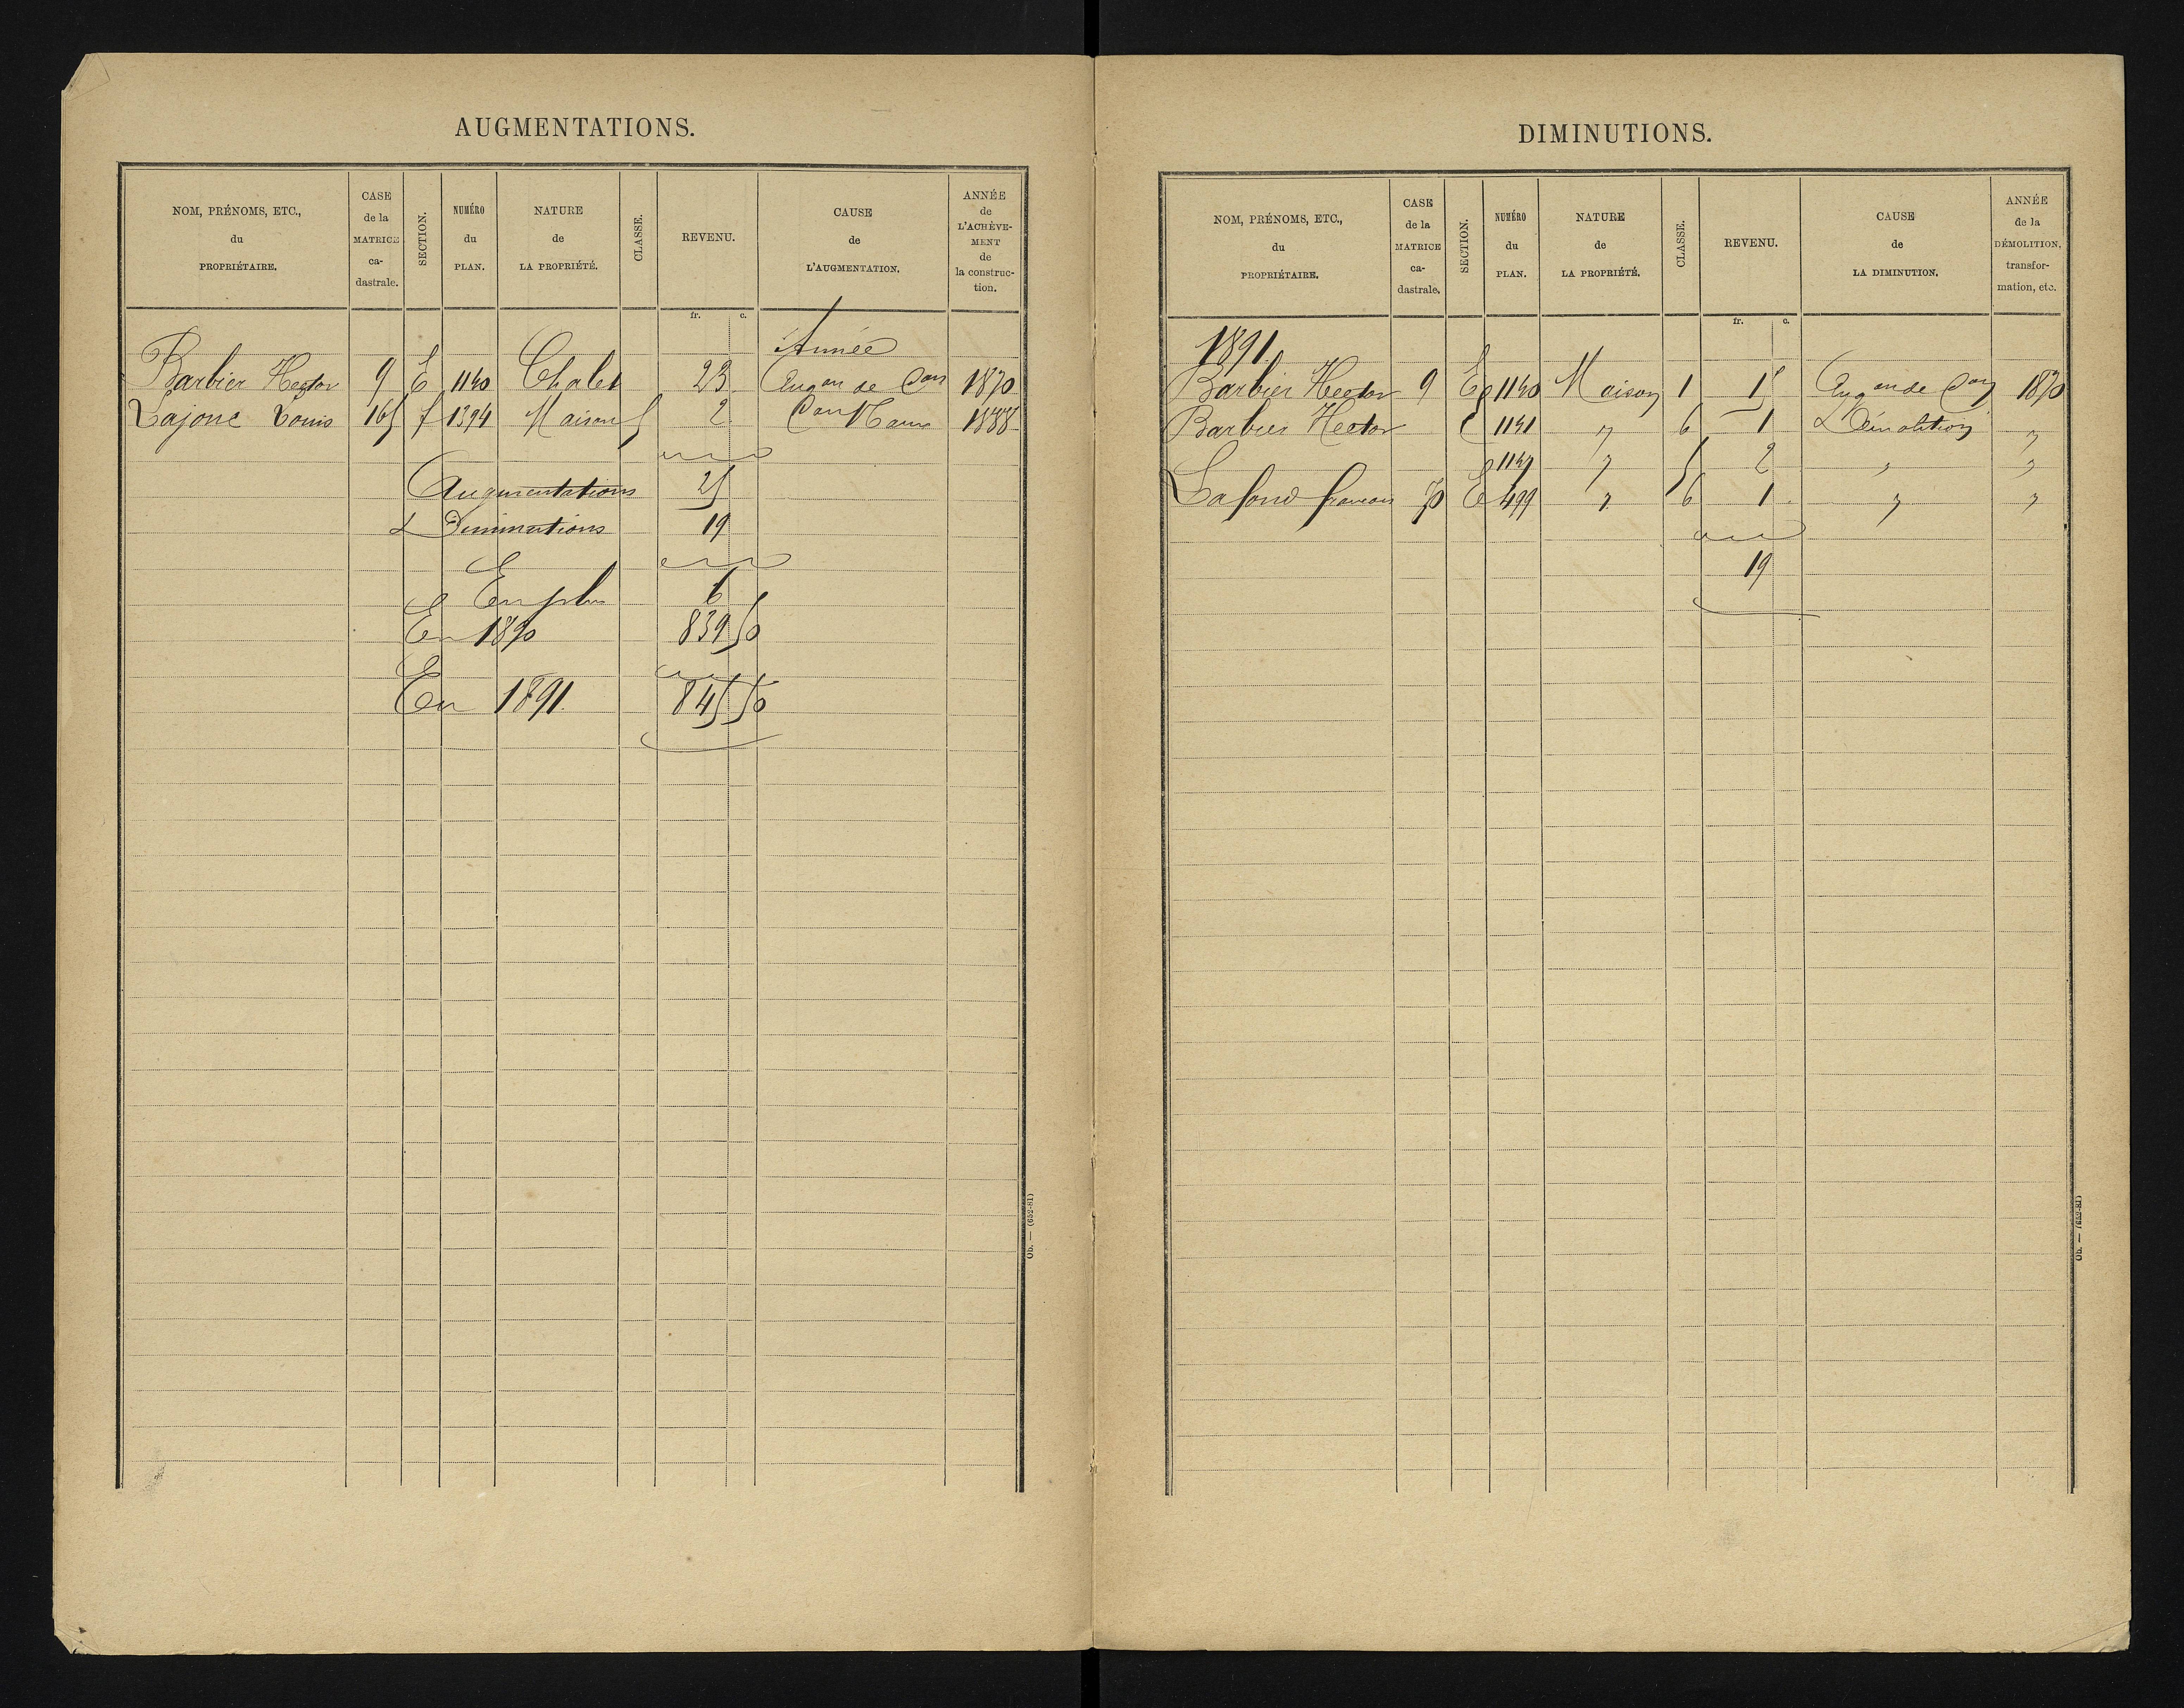 AUGMENTATIONS.
NOM, PRÉNOMS, ETC., du PROPRIÉTAIRE. | CASE de la MATRICE ca- dastrale. | SECTION. | NUMÉRO du PLAN. | NATURE de LA PROPRIÉTÉ. | CLASSE. | REVENU. | CAUSE de L'AUGMENTATION. | ANNÉE de L'ACHÈVE- MENT de la construc- tion.
fr. c.
Année
Barbier Hector 9 E 1140 Chalet 23 Augon de Con 1890
Lajonc Louis 165 f 1394 Maison 5 2 Con 1888
Augmentations 25
Diminutions 19
En plus 6
En 1890 839 50
En 1891 845 50
Ob. — (652-81)
DIMINUTIONS.
NOM, PRÉNOMS, ETC., du PROPRIÉTAIRE. | CASE de la MATRICE ca- dastrale. | SECTION. | NUMÉRO du PLAN. | NATURE de LA PROPRIÉTÉ. | CLASSE. | REVENU. | CAUSE de LA DIMINUTION. | ANNÉE de la DÉMOLITION, transfor- mation, etc.
fr. c.
1891
Barbier Hector 9 E 1140 Maison 1 15 Augon de Con 1890
Barbier Hector E 1141 " 6 1 Démolition "
E 1147 " 5 2 " "
Lafond francois 70 E 499 " 6 1 " "
19
Ob. — (652-81)